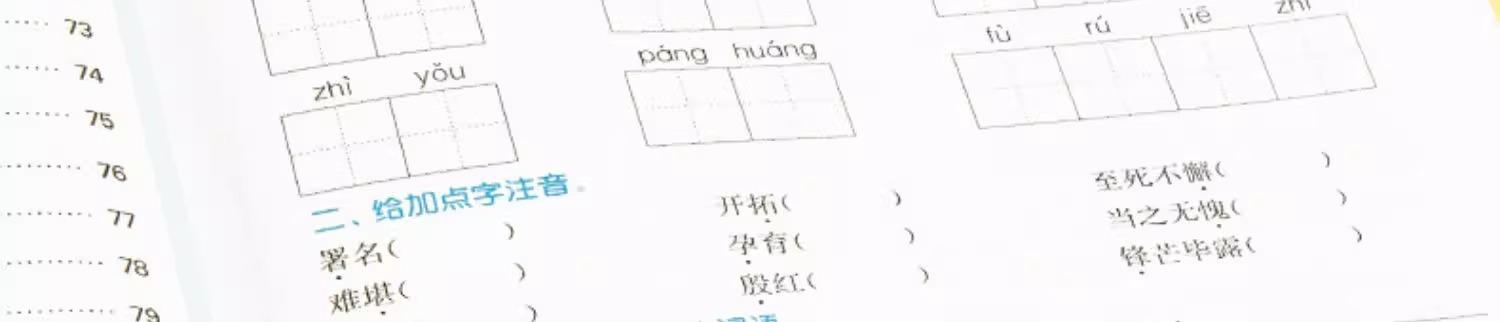 73
74
75
76
77
78
79
zhì yǒu
páng huáng
fù rú jiē zhī
二、给加点字注音。
署名( ) 开拓( ) 至死不懈( )
难堪( ) 孕育( ) 当之无愧( )
殷红( ) 锋芒毕露( )
)